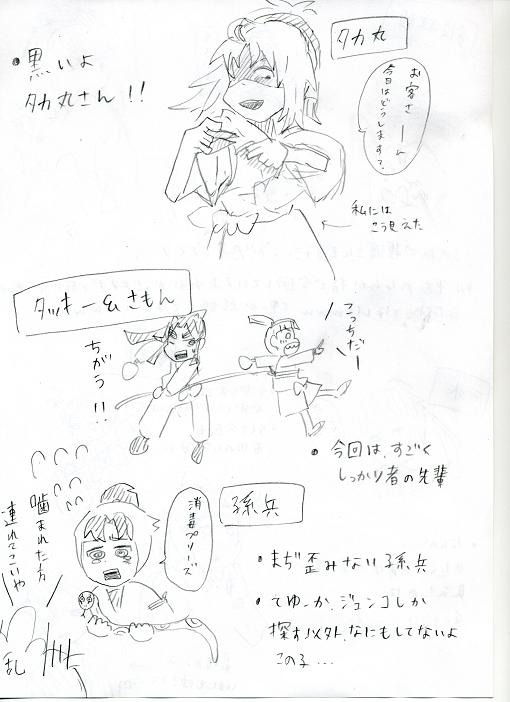 タカ丸
・黒いよ
タカ丸さん！！
お客さーん
今日はどうします？
私には
こう見えた
タッキー&さもん
こっちだー
ちがう！！
・今回は、すごく
しっかり者の先輩
孫兵
消毒プリーズ
噛まれた方
連れてこいや
乱
・まぢ歪みない孫兵
・てゆーか、ジュンコしか
探す以外、なにもしてないよ
この子…